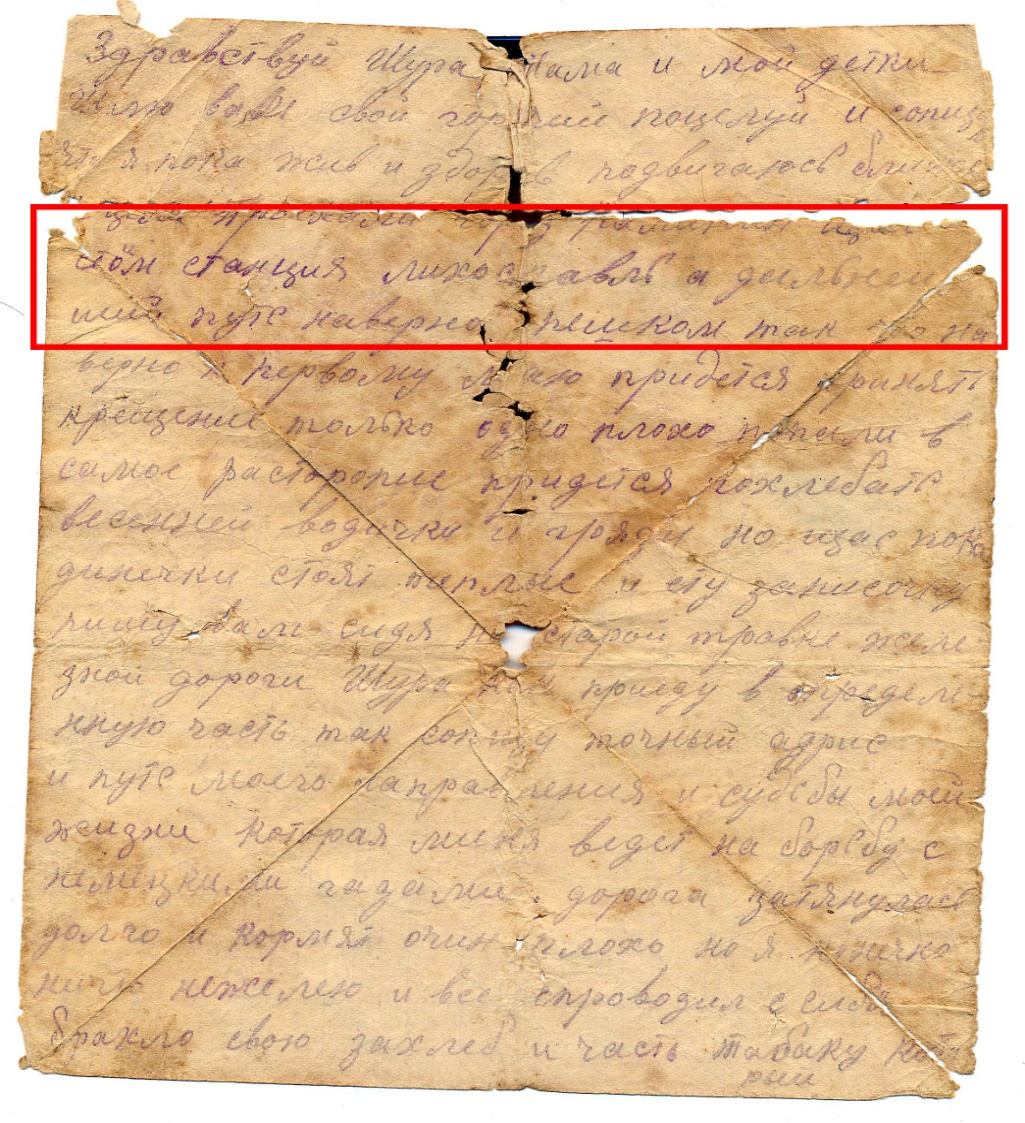 Здравствуй Шура Мама и мои детки
Шлю вам свой горячий поцелуй и сопщ
что я пока жив и здоров подвигаюсь ближе
проехали
станция лихославль а дальней
ший путь наверно пешком так что на
верно к первому маю придется принять
крещение только одно плохо попали в
самое расторопие придется похлебать
весенней водички и грязи но щас пока
динечки стоят теплые и ету записочку
пишу вам сидя на старой травке желе
зной дороги Шура как приеду в определе
нную часть так сопщу точный адрис
и путь моего направления и судьбы моей
жизни которая миня ведет на борьбу с
немецкими гадами дорога затянулась
долго и кормят очин плохо но я конечно
ничто нежелею и все спроводил с себя
брахло свою захлеб и часть табаку кото
рый